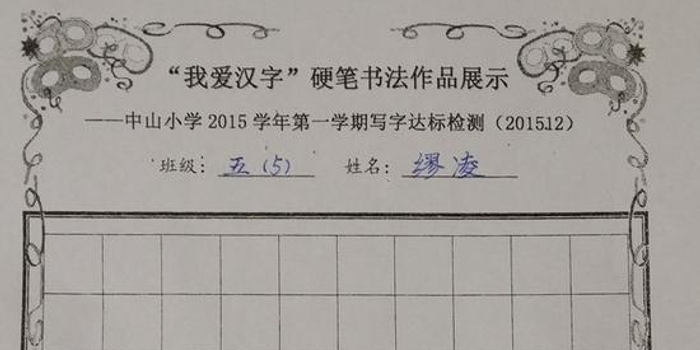 “我爱汉字”硬笔书法作品展示
——中山小学 2015 学年第一学期写字达标检测（2015.12）
班级：五（5） 姓名：缪凌